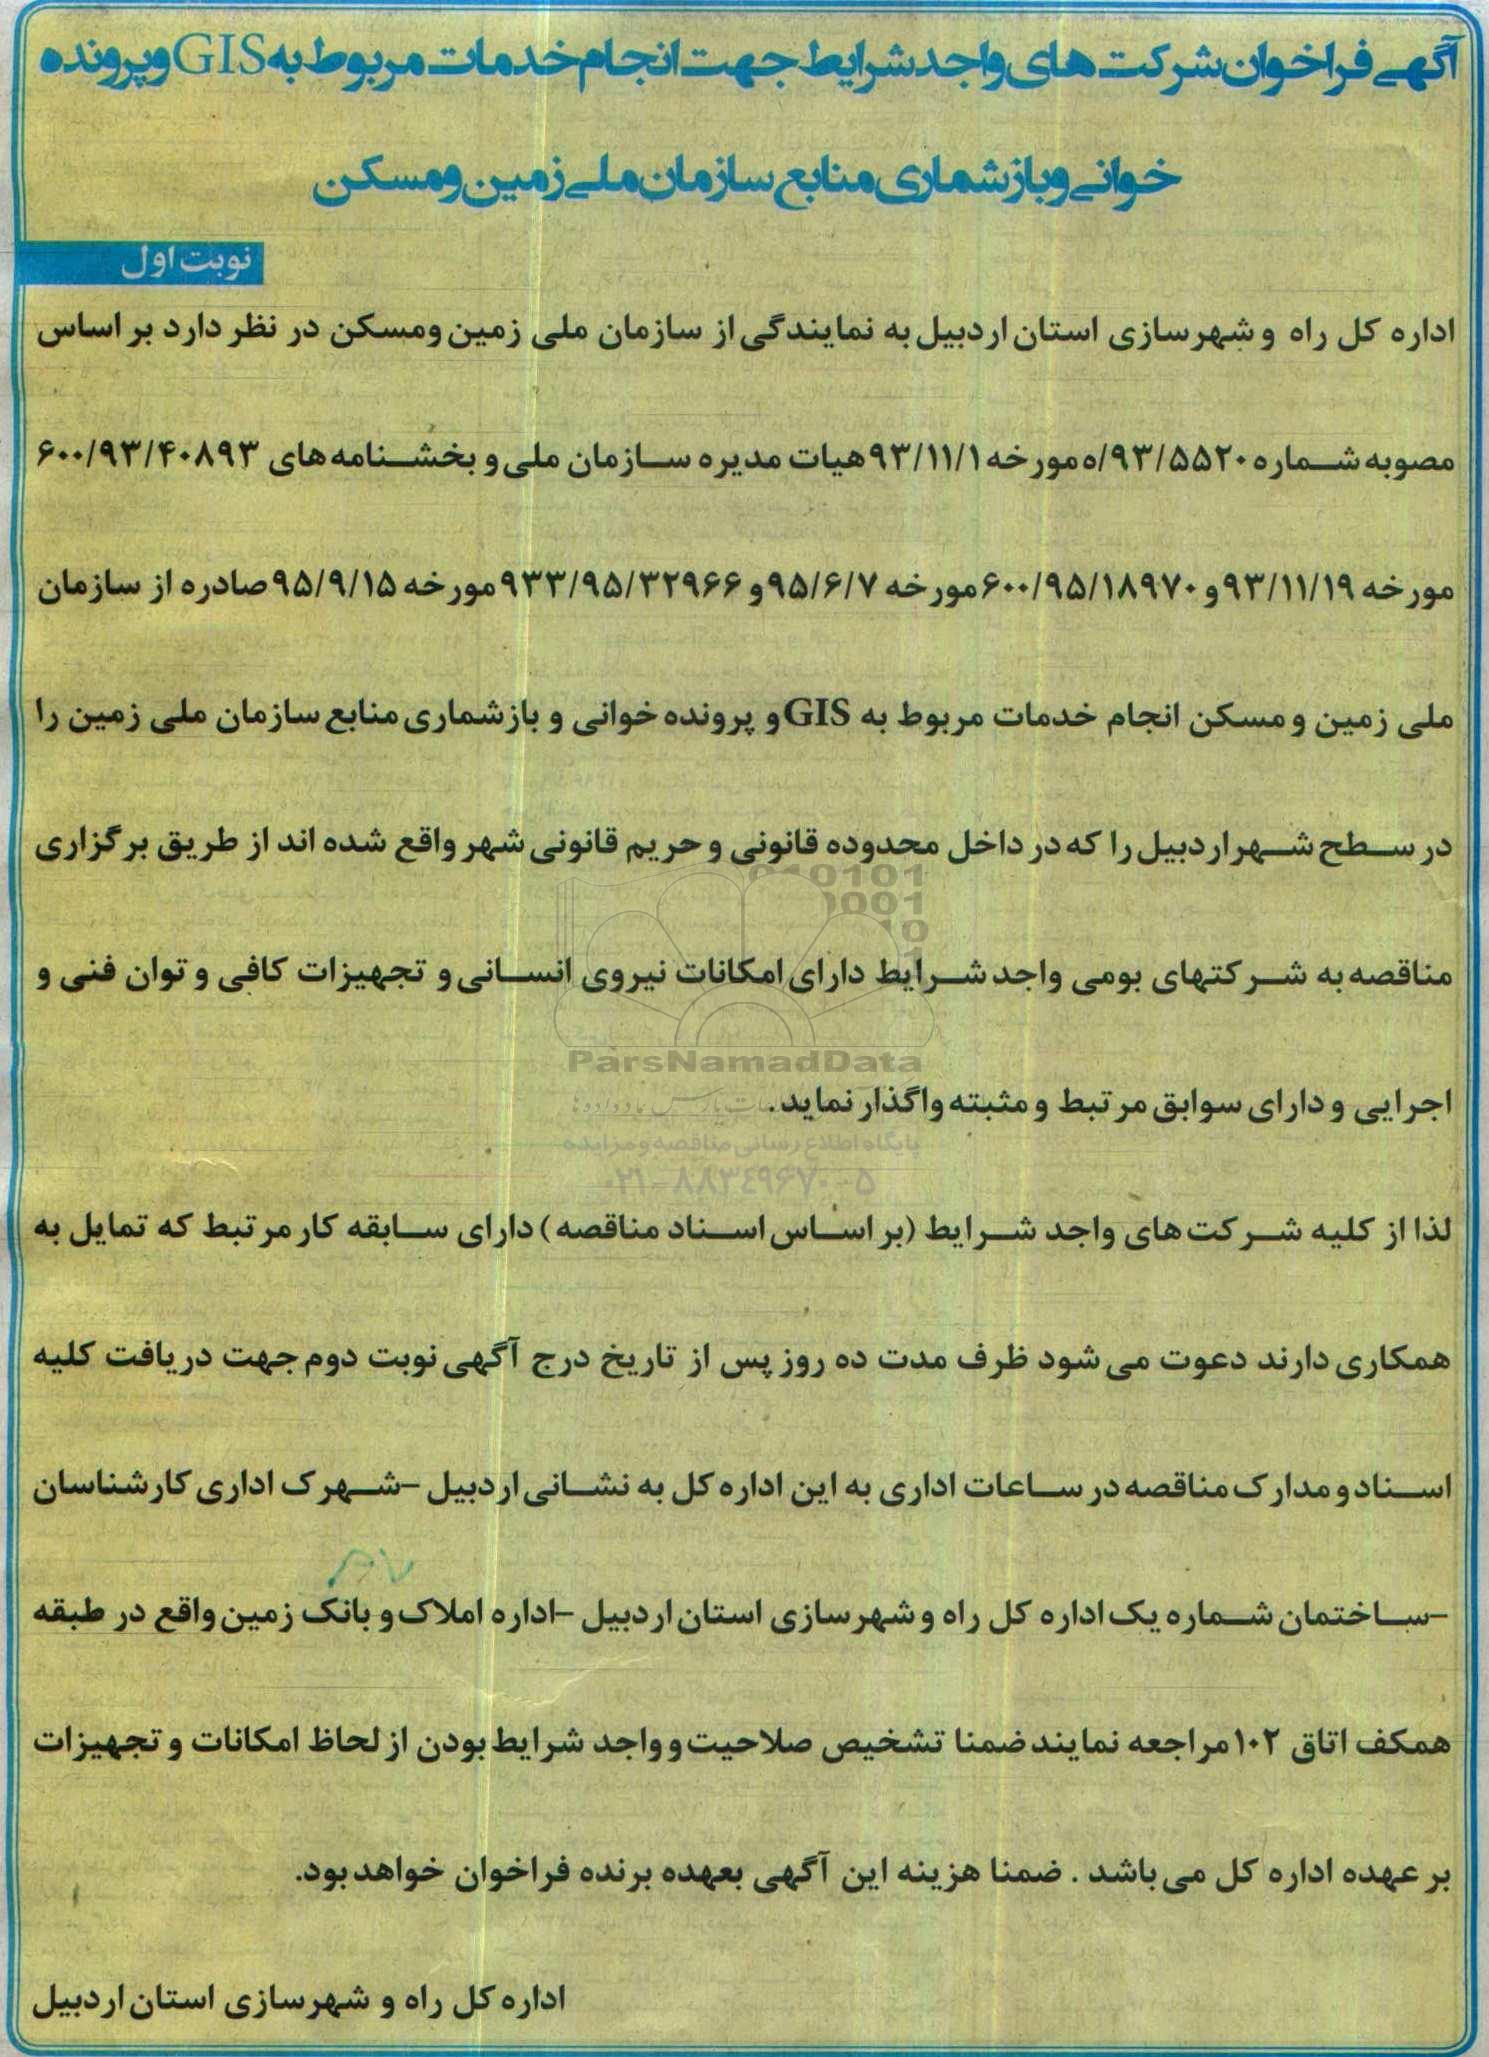 آگهی فراخوان شرکت های واجد شرایط جهت انجام خدمات مربوط به GIS و پرونده
خوانی و بازشماری منابع سازمان ملی زمین و مسکن
نوبت اول
اداره کل راه و شهرسازی استان اردبیل به نمایندگی از سازمان ملی زمین ومسکن در نظر دارد بر اساس
مصوبه شماره ۹۳/۵۵۲۰/ه مورخه ۹۳/۱۱/۱ هیات مدیره سازمان ملی و بخشنامه های ۶۰۰/۹۳/۴۰۸۹۳
مورخه ۹۳/۱۱/۱۹ و ۶۰۰/۹۵/۱۸۹۷۰ مورخه ۹۵/۶/۷ و ۹۳۳/۹۵/۳۲۹۶۶ مورخه ۹۵/۹/۱۵ صادره از سازمان
ملی زمین و مسکن انجام خدمات مربوط به GIS و پرونده خوانی و بازشماری منابع سازمان ملی زمین را
در سطح شهر اردبیل را که در داخل محدوده قانونی و حریم قانونی شهر واقع شده اند از طریق برگزاری
مناقصه به شرکتهای بومی واجد شرایط دارای امکانات نیروی انسانی و تجهیزات کافی و توان فنی و
ParsNamadData
اجرایی و دارای سوابق مرتبط و مثبته واگذار نماید.
پایگاه اطلاع رسانی مناقصه و مزایده
۰۲۱-۸۸۳۴۹۶۷۰-۵
لذا از کلیه شرکت های واجد شرایط (بر اساس اسناد مناقصه) دارای سابقه کار مرتبط که تمایل به
همکاری دارند دعوت می شود ظرف مدت ده روز پس از تاریخ درج آگهی نوبت دوم جهت دریافت کلیه
اسناد و مدارک مناقصه در ساعات اداری به این اداره کل به نشانی اردبیل -شهرک اداری کارشناسان
-ساختمان شماره یک اداره کل راه و شهرسازی استان اردبیل -اداره املاک و بانک زمین واقع در طبقه
همکف اتاق ۱۰۲ مراجعه نمایند ضمنا تشخیص صلاحیت و واجد شرایط بودن از لحاظ امکانات و تجهیزات
بر عهده اداره کل می باشد . ضمنا هزینه این آگهی بعهده برنده فراخوان خواهد بود.
اداره کل راه و شهرسازی استان اردبیل